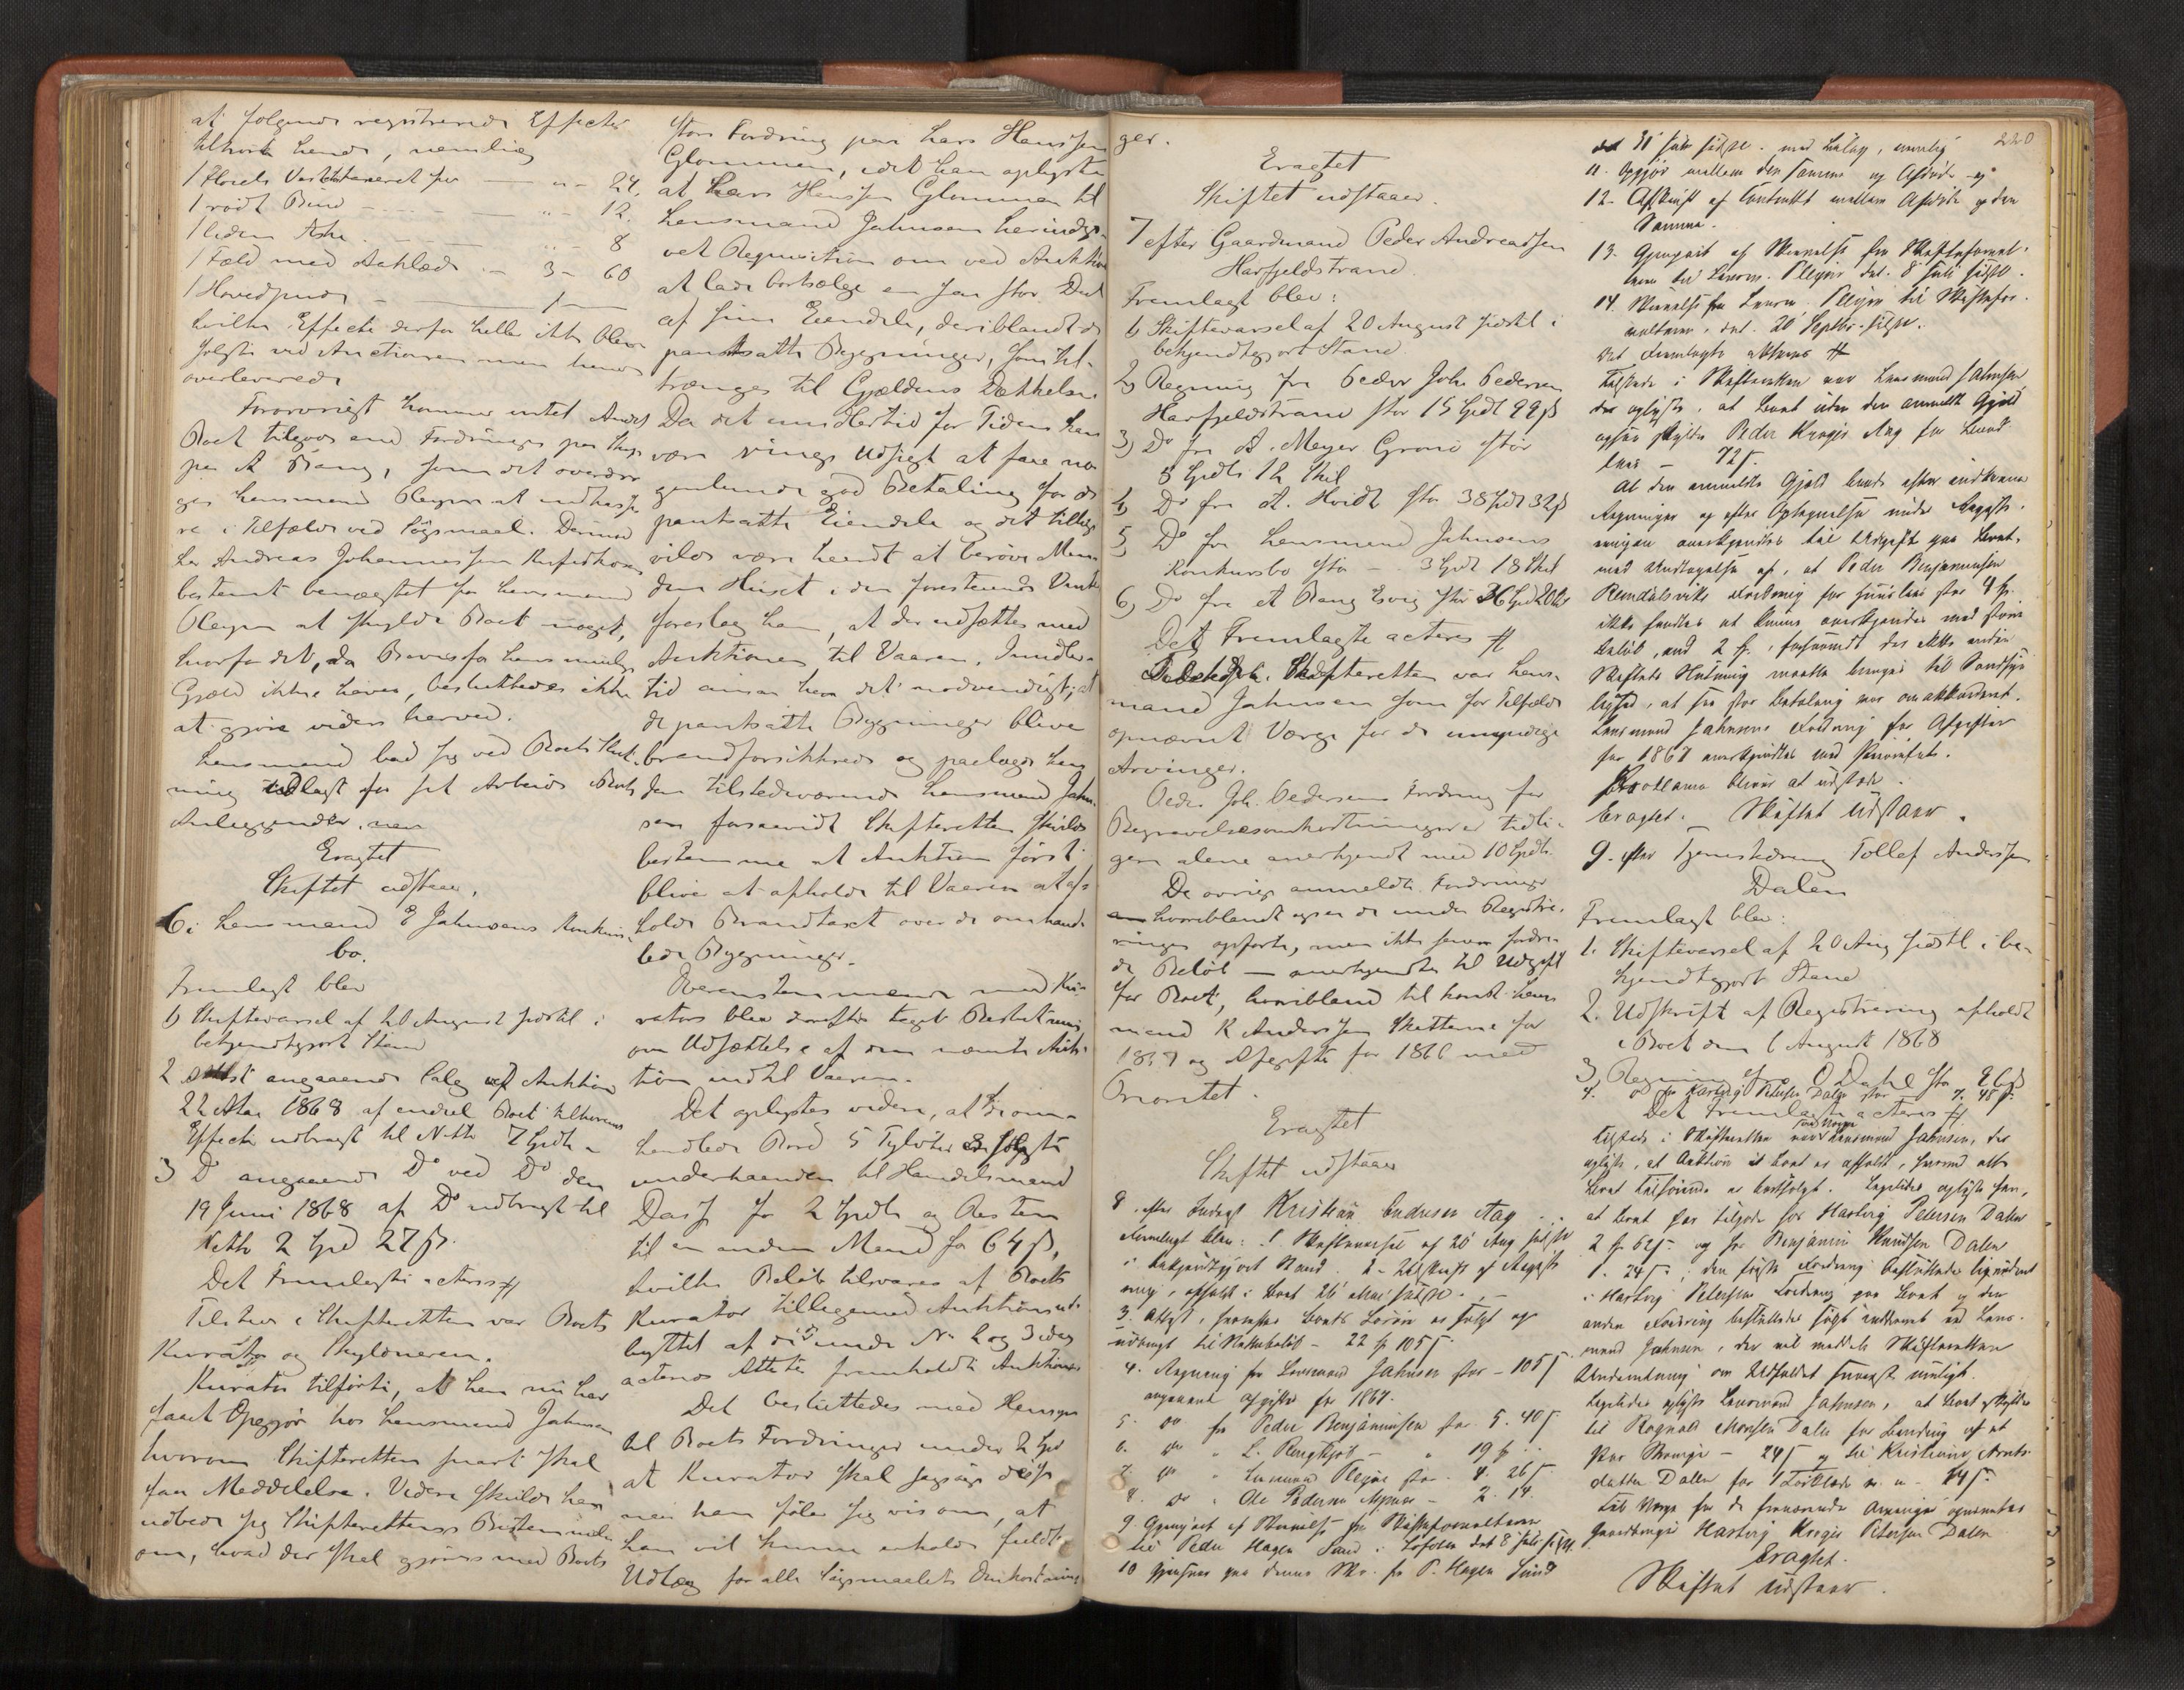 at følgende registrerede Effecter
tilhørte hende, nemlig
1 Vest taxeret for — " - 24.
1 rødt — " - 12.
1 liden — " - 8
1 Fæld med Aaklæde - 3 - 60
1 Hovedpude - 1 -
hvilke Effecter derfor heller ikke blev
solgte ved Auctionen men hende
overleverede
Forøvrigt kommer intet Andet
Boet tilgode end Fordringer paa
paa A Bang, som det overdra
ges Lensmand at indkasse
re i Tilfælde ved Søgsmaal. Derimod
har Andreas Johannessen
bestemt benægtet for Lensmand
at skylde Boet noget,
hvorfor det, da Beviser for hans mulige
Gjæld ikke haves, besluttedes ikke
at gjøre videre herved.
Lensmand bad sig ved Boets Slut-
ning udlagt for sit Arbeide Boets
Anliggender.
Eragtet
Skiftet udstaaer.
6 i Lensmand E Jahnsens Konkurs-
bo.
Fremlagt blev
1 Skiftevarsel af 20 August sidstl i
bekjendtgjort Stand
2 Attest angaaende Salg ved Auktion
22 Mai 1868 af endeel Boet tilhørende
Effecter udbragt til Netto 7 Spdlr
3 Do angaaende Do ved Do den
19 Juni 1868 af Do udbragt til
Netto 2 Spd 27 ß.
Det Fremlagte acteres #
Tilstede i Skifteretten var Boets
Kurator og Skyldneren.
Kurator tilførte, at han nu har
faaet Opgjør hos Lensmand Jahnsen
hvorom Skifteretten snart skal
faa Meddelelse. Videre skulde han
udbede sig Skifterettens Bestemmelse
om, hvad der skal gjøres med Boets
store Fordring paa Lars Hanssen
Glommen, idet han oplyste
at Lars Hanssen Glommen til
Lensmand Jahnsen har indgi-
vet Requisition om ved Auktion
at lade bortsælge en saa stor Deel
af sine Eiendele, deriblandt de
pantsatte Bygninger, som til-
trænges til Gjældens Dækkelse.
Da det imidlertid for Tiden kan
være ringe Udsigt at faae no
genlunde god Betaling for de
pantsatte Eiendele og det tillige
vilde være haardt at berøve Man-
den Huset i den forestaaende Vinter
foreslog han, at der udsættes med
Auktionen til Vaaren. Imidler-
tid anser han det nødvendigt, at
de pantsatte Bygninger blive
brandforsikkrede og paalagde han
den tilstedeværende Lensmand Jahn-
sen forsaavidt Skifteretten skulde
bestemme at Auktion først
bliver at afholde til Vaaren at af-
holde Brandtaxt over de omhand-
lede Bygninger.
Overensstemmende med Ku-
rators blev derefter taget Beslutning
om Udsættelse af den nævnte Auk-
tion indtil Vaaren.
Det oplystes videre, at de om-
handlede Bord 5 Tylvter er solgte
underhaanden til Handelsmand
Dass for 2 Spdlr og Resten
til en anden Mand for 64 ß,
hvilke Beløb tilsvares af Boets
Kurator tilligemed Auktionsud-
byttet af de under No 2 og 3 idag
acterede Attester fremholdte Auktioner
Det besluttedes med Hensyn
til Boets Fordringer under 2 Spd
at Kurator skal sagsøge disse
naar han føler sig vis om, at
han vil kunne erholde fuldt
Udlæg for alle Søgsmaalets Omkostnin-
ger.
Eragtet
Skiftet udstaaer.
7 efter Gaardmand Peder Andreassen
Harfjeldstrand.
Fremlagt blev:
1 Skiftevarsel af 20 August sidstl i
bekjendtgjort Stand.
2) Regning fra Peder Joh. Pedersen
Harfjeldstrand stor 15 Spdl 99 ß
3) Do fra A. Meyer Grønø stor
5 Spdlr 12 Skil
4) Do fra A. Hvidt stor 38 Spd 32 ß
5) Do fra Lensmand Jahnsens
Konkursbo stor — 3 Spd 18 Skil
6) Do fra A Bang stor 26 Spd
Det Fremlagte acteres #
Tilstede i Skifteretten var Lens-
mand Jahnsen som for Tilfældet
opnævnt Værge for de umyndige
Arvinger.
Peder Joh. Pedersens Fordring for
Begravelsesomkostninger er tidli-
gere alene anerkjendt med 10 Spdlr.
De øvrige anmeldte Fordringer
hvoriblandt ogsaa de under Registre-
ringen opførte, men ikke senere fordre-
de Beløb — anerkjendtes til Udgift
for Boet, hvoriblandt til forhv. Lens
mand R Anderssen Skatterne for
1867 og Afgifter for 1866 med
Prioritet.
Eragtet
Skiftet udstaaer
8. efter Kristian Aag
Fremlagt blev: 1. Skiftevarsel af 20 Aug sidstl
i bekjendtgjort Stand. 2 - Udskrift af Registre
ring, afholdt i Boet 26 Mai sidstl. -
3. Attest, hvorefter Boets Løsøre er solgt og
udbragt til Nettobeløb - 22 Sp 105 ß.
4. Regning fra Lensmand Jahnsen stor - 105 ß.
angaaende Afgifter for 1867.
5. do fra Peder Benjaminsen stor 5. 40 ß.
6. do " L. - " 19 ß
7. do " Lensmand stor. 4. 26 ß.
8. do " Ole Pedersen - 2. 14.
9 Gjenpart af Skrivelse fra Skifteforvalteren
til Peder Hagen Sund i Lofoten dat 8 Juli sidstl.
10 Gjensvar paa denne Skr. fra P. Hagen Sund
220
31 Juli sidstl. med Bilag, nemlig
11. Opgjør mellem den Samme og Afdøde og
12. Afskrift af Contract mellem Afdøde og den
Samme.
13. Gjenpart af Skrivelse fra Skifteforval-
teren til Lensm. dat. 8 Juli sidstl.
14. Skrivelse fra Lensm. til Skiftefor-
valteren, dat. 20 Septbr. sidstl.
Det Fremlagte acteres #
Tilstede i Skifteretten var Lensmand Jahnsen
der oplyste, at Boet uden den anmeldte Gjæld
ogsaa skylder Peder Aag for
leie — 72 ß.
Al den anmeldte Gjæld baade efter indkomne
Regninger og efter Optegnelse under Registre-
ringen anerkjendtes til Udgift paa Boet,
med Undtagelse af, at Peder Benjaminsen
Rendalsviks Fordring for Huusleie stor 4 Sp.
ikke fandtes at kunne anerkjendes med større
Beløb, end 2 Sp., forsaavidt der ikke inden
Skiftets Slutning maatte bringes til Sandsyn
lighed, at saa stor Betaling var omakkorderet.
Lensmand Jahnsens Fordring for Afgifter
for 1867 anerkjendtes med Prioritet.
Proclama bliver at udstede.
Eragtet. — Skiftet udstaaer.
9. efter Tjenestedreng Tollef Anderssen
Dalen
Fremlagt blev:
1. Skiftevarsel af 20 Aug sidstl i be-
kjendtgjort Stand
2. Udskrift af Registrering afholdt
i Boet den 6 August 1868
3) Regning fra C Dahl stor 96 ß
4. do fra Hartvig Petersen Dalen stor 7. 45 ß.
Det Fremlagte acteres #
som Værge
Tilstede i Skifteretten var Lensmand Jahnsen, der
oplyste, at Auktion i Boet er afholdt, hvorved alt
Boet Tilhørende er bortsolgt. Ligeledes oplyste han,
at Boet har tilgode hos Hartvig Petersen Dalen
2 Sp 62 ß. og hos Benjamin Knudsen Dalen
1. 24 ß.; den første Fordring besluttedes liqvideret
i Hartvig Petersens Fordring paa Boet og den
anden Fordring besluttedes søgt inddrevet ved Lens-
mand Jahnsen, der vil meddele Skifteretten
Underretning om Udfaldet snarest muligt.
Ligeledes oplyste Lensmand Jahnsen, at Boet skylder
til Dalen for af et
Par - 24 ß og til Kristiane Arnts-
datter Dalen for 1 - 24 ß.
Til Værge for de fraværende Arvinger opnævntes
Gaardbruger Hartvig Petersen Dalen
Eragtet.
Skiftet udstaaer.